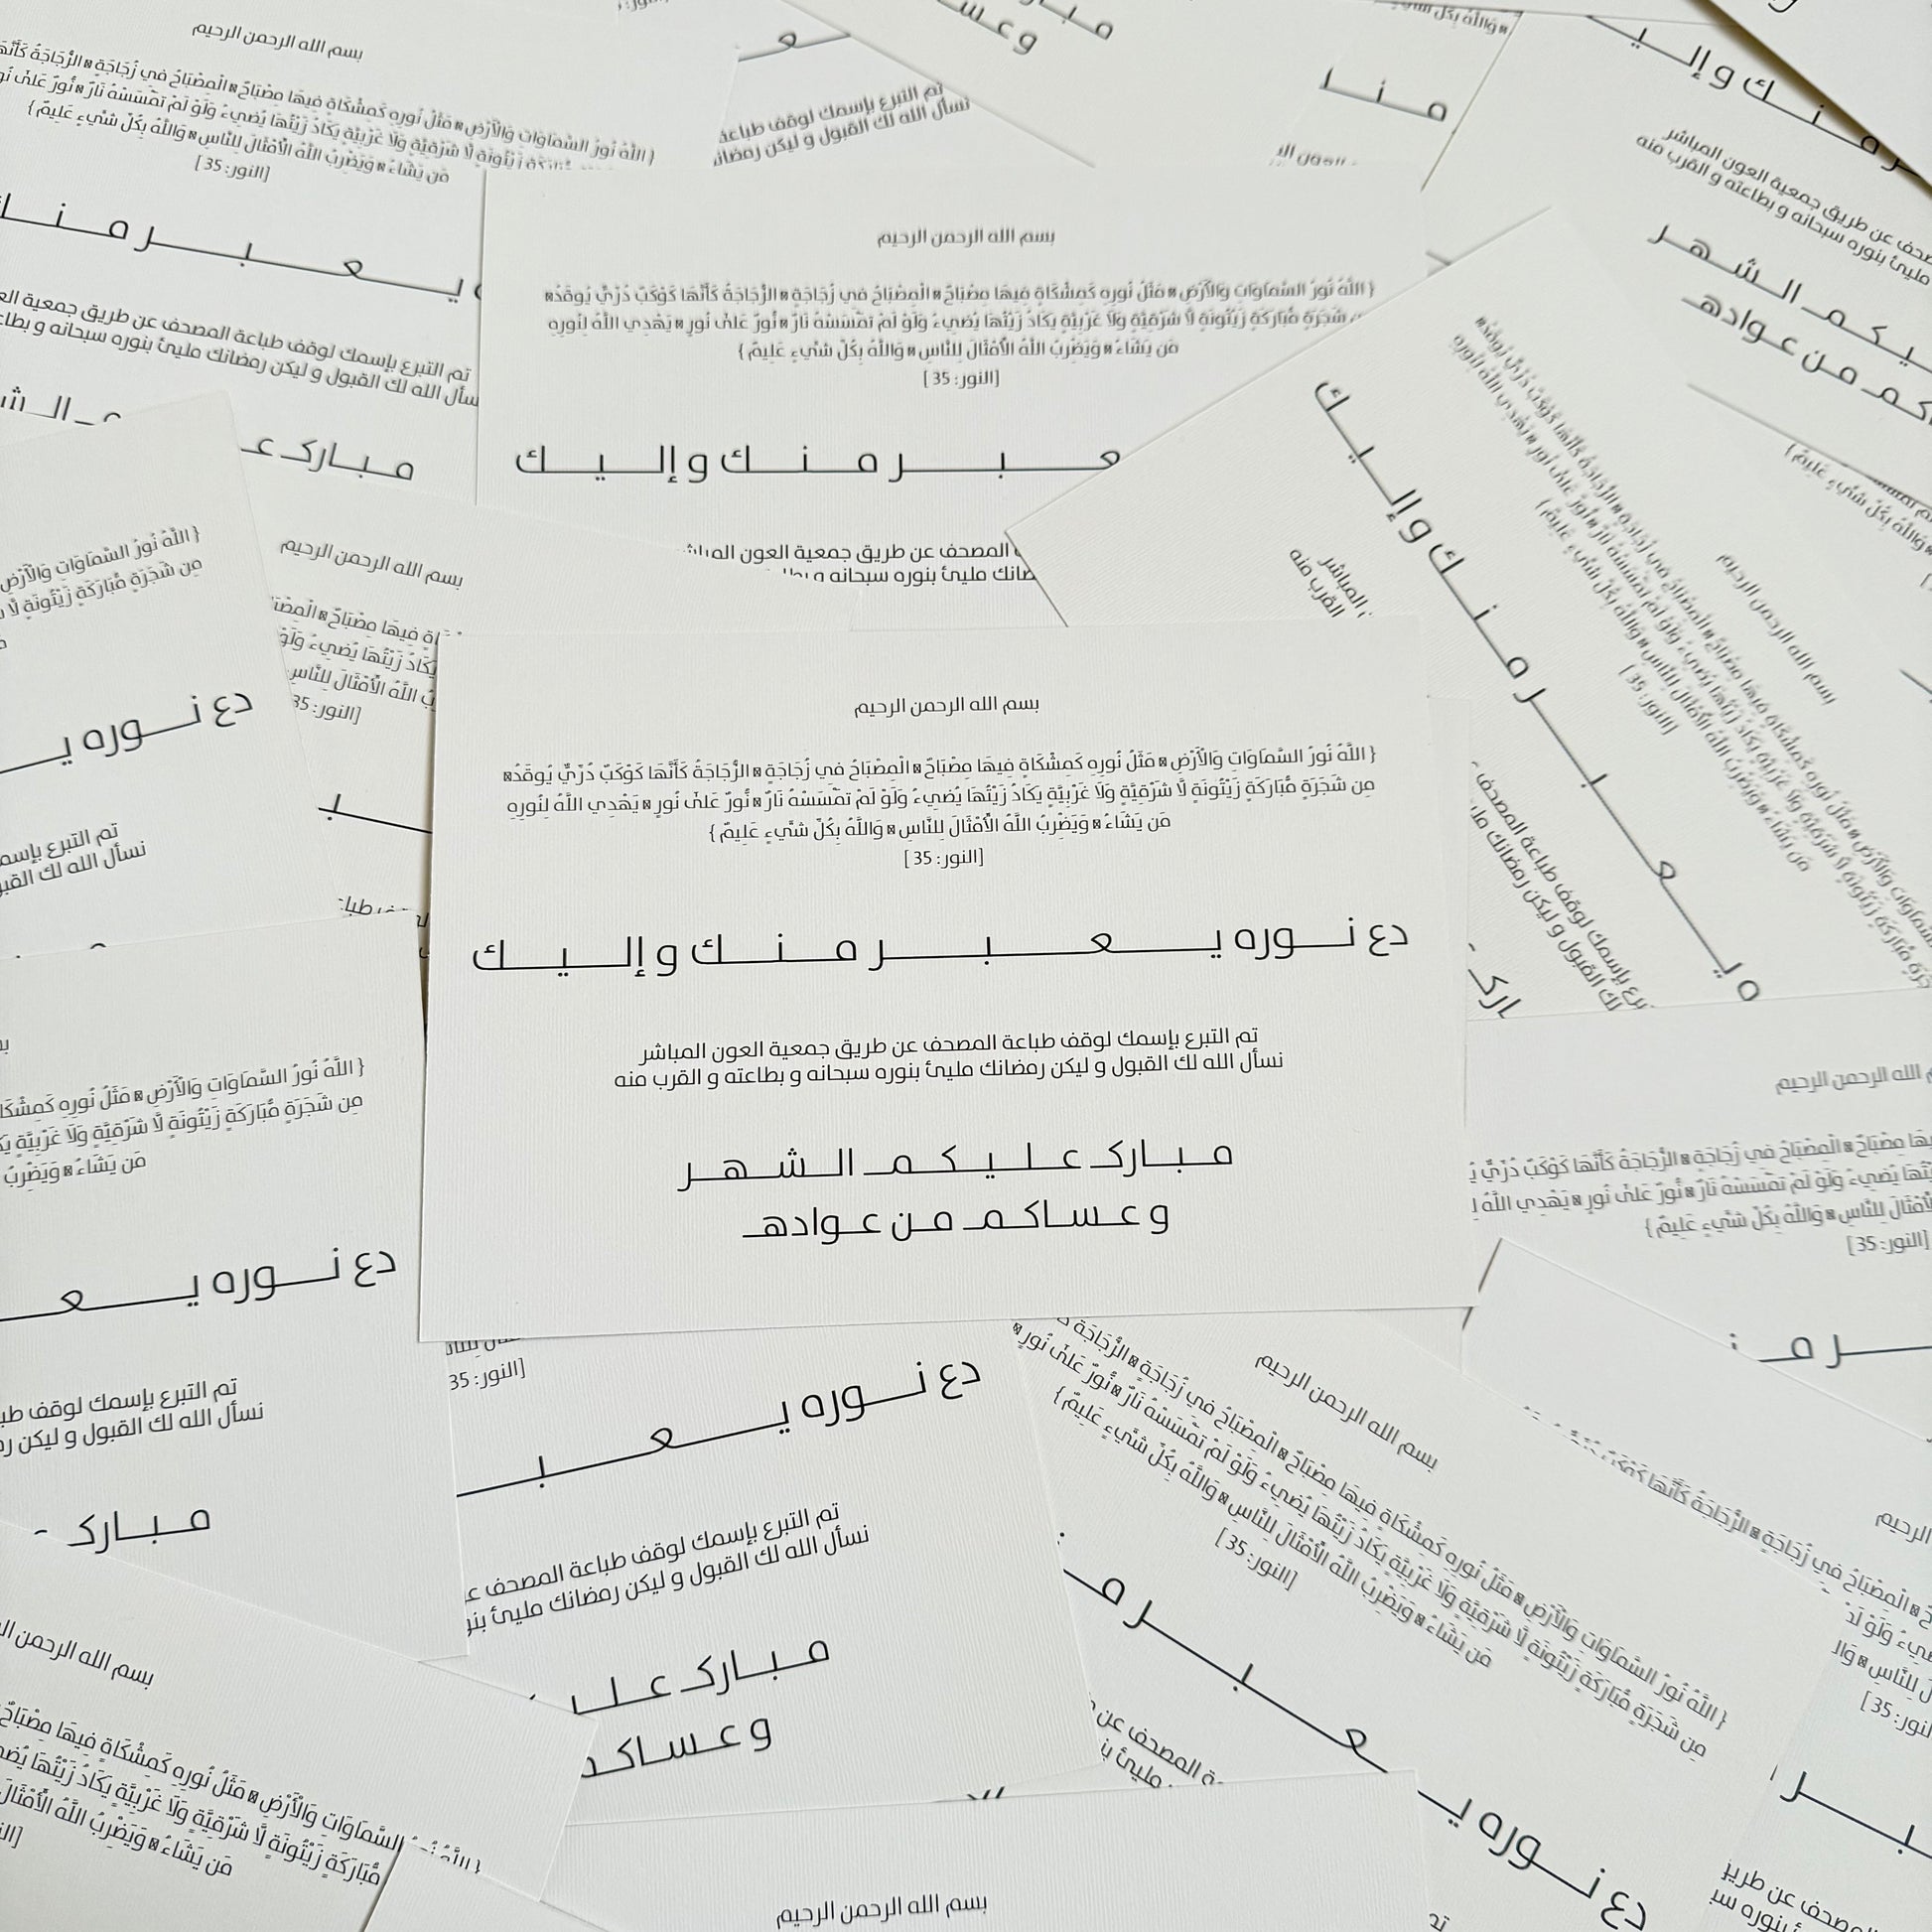 بسم الله الرحمن الرحيم
{ اللَّهُ نُورُ السَّمَاوَاتِ وَالْأَرْضِ ۚ مَثَلُ نُورِهِ كَمِشْكَاةٍ فِيهَا مِصْبَاحٌ ۖ الْمِصْبَاحُ فِي زُجَاجَةٍ ۖ الزُّجَاجَةُ كَأَنَّهَا كَوْكَبٌ دُرِّيٌّ يُوقَدُ
مِن شَجَرَةٍ مُّبَارَكَةٍ زَيْتُونَةٍ لَّا شَرْقِيَّةٍ وَلَا غَرْبِيَّةٍ يَكَادُ زَيْتُهَا يُضِيءُ وَلَوْ لَمْ تَمْسَسْهُ نَارٌ ۚ نُّورٌ عَلَىٰ نُورٍ ۗ يَهْدِي اللَّهُ لِنُورِهِ
مَن يَشَاءُ ۚ وَيَضْرِبُ اللَّهُ الْأَمْثَالَ لِلنَّاسِ ۗ وَاللَّهُ بِكُلِّ شَيْءٍ عَلِيمٌ }
[النور: 35]
دع نوره يعبر منك وإليك
تم التبرع بإسمك لوقف طباعة المصحف عن طريق جمعية العون المباشر
نسأل الله لك القبول و ليكن رمضانك مليئ بنوره سبحانه و بطاعته و القرب منه
مبارك عليكم الشهر
وعساكم من عواده